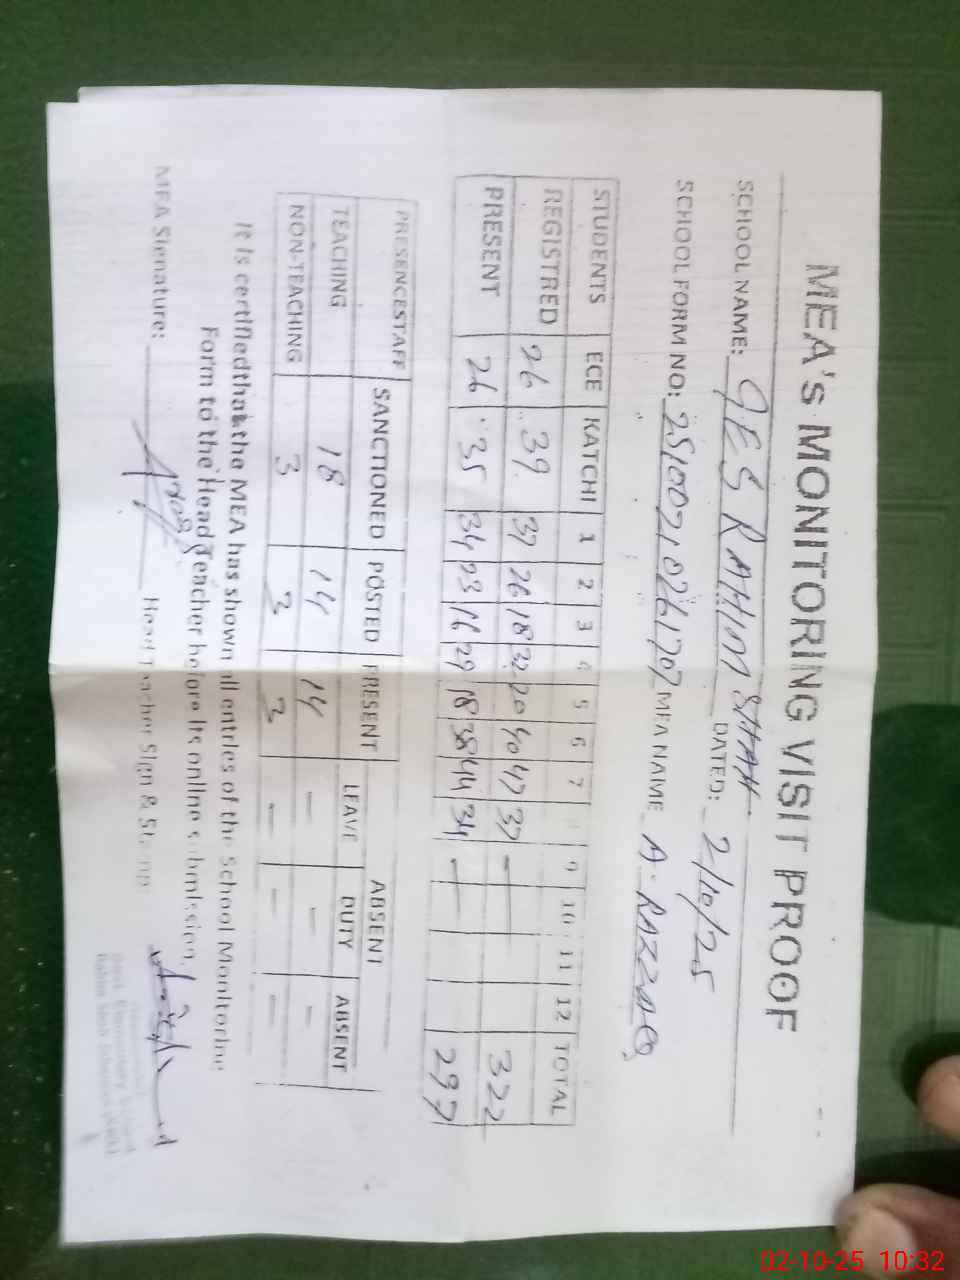 MEA's MONITORING VISIT PROOF
SCHOOL NAME: GES RAHIM SHAH DATED: 2/10/25
SCHOOL FORM NO: 25100710261707 MEA NAME A. RAZZAQ
STUDENTS ECE KATCHI 1 2 3 4 5 6 7 9 10 11 12 TOTAL
REGISTRED 26 39 37 26 18 32 20 40 47 37 - 322
PRESENT 26 35 34 23 16 29 18 38 44 34 - 297
PRESENCESTAFF SANCTIONED POSTED PRESENT ABSENT
LEAVE DUTY ABSENT
TEACHING 18 14 14 - - -
NON-TEACHING 3 3 3 - - -
It is certified that the MEA has shown all entries of the School Monitoring
Form to the Head Teacher before its online submission.
MEA Signature: Head Teacher Sign & Stamp
02-10-25 10:32